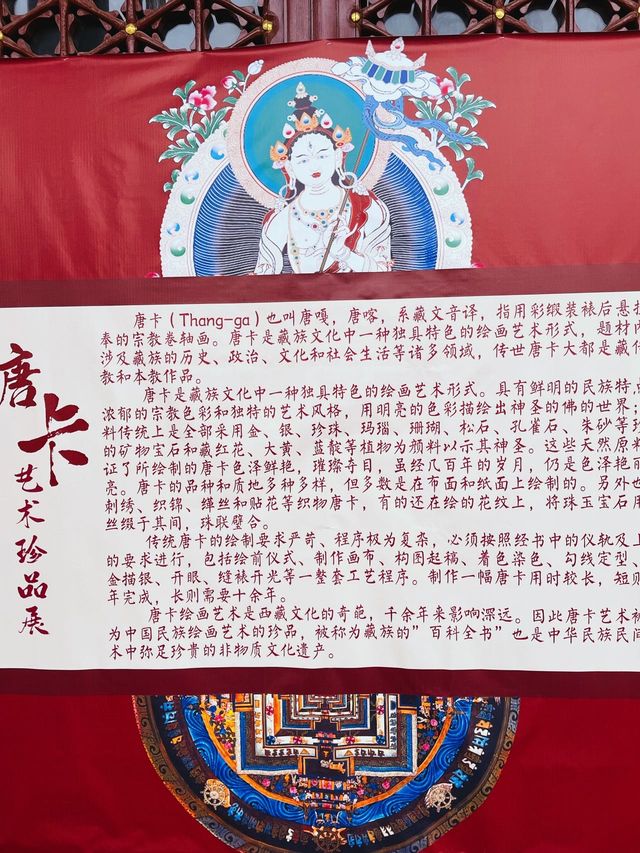 唐卡
艺术珍品展
唐卡（Thang-ga）也叫唐嘎，唐喀，系藏文音译，指用彩缎装裱后悬挂
奉的宗教卷轴画。唐卡是藏族文化中一种独具特色的绘画艺术形式，题材内
涉及藏族的历史、政治、文化和社会生活等诸多领域，传世唐卡大都是藏传
教和本教作品。
唐卡是藏族文化中一种独具特色的绘画艺术形式。具有鲜明的民族特点
浓郁的宗教色彩和独特的艺术风格，用明亮的色彩描绘出神圣的佛的世界；
料传统上是全部采用金、银、珍珠、玛瑙、珊瑚、松石、孔雀石、朱砂等珍
的矿物宝石和藏红花、大黄、蓝靛等植物为颜料以示其神圣。这些天然原料
证了所绘制的唐卡色泽鲜艳，璀璨夺目，虽经几百年的岁月，仍是色泽艳丽
亮。唐卡的品种和质地多种多样，但多数是在布面和纸面上绘制的。另外也
刺绣、织锦、缂丝和贴花等织物唐卡，有的还在绘的花纹上，将珠玉宝石用
丝缀于其间，珠联璧合。
传统唐卡的绘制要求严苛、程序极为复杂，必须按照经书中的仪轨及上
的要求进行，包括绘前仪式、制作画布、构图起稿、着色染色、勾线定型、
金描银、开眼、缝裱开光等一整套工艺程序。制作一幅唐卡用时较长，短则
年完成，长则需要十余年。
唐卡绘画艺术是西藏文化的奇葩，千余年来影响深远。因此唐卡艺术被
为中国民族绘画艺术的珍品，被称为藏族的”百科全书”也是中华民族民间
术中弥足珍贵的非物质文化遗产。